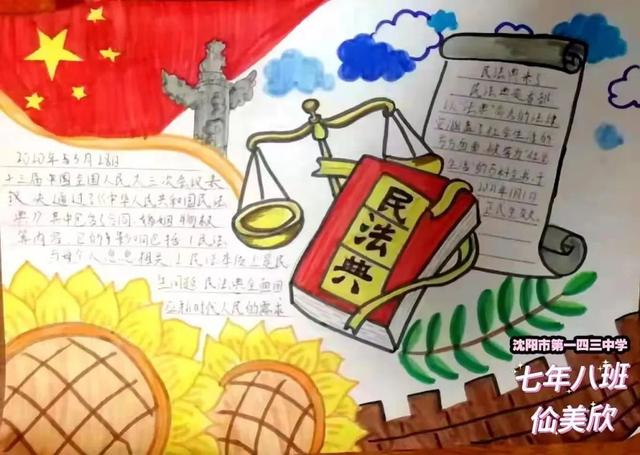 2020年5月28日
十三届中国全国人民大三次会议表
决通过了《中华人民共和国民法
典》其中包含合同 婚姻 物权
等内容
与每个人息息相关 民法本质上是民
生问题 民法典全面回
应新时代人民的需求
民法典来了
民法典是首部
以"法典"命名的法律
它涵盖了社会生活的
方方面面 被誉为"社会
生活"的百科全书,于
2021年1月1日
正式生效.
民法典
沈阳市第一四三中学
七年八班
仚美欣